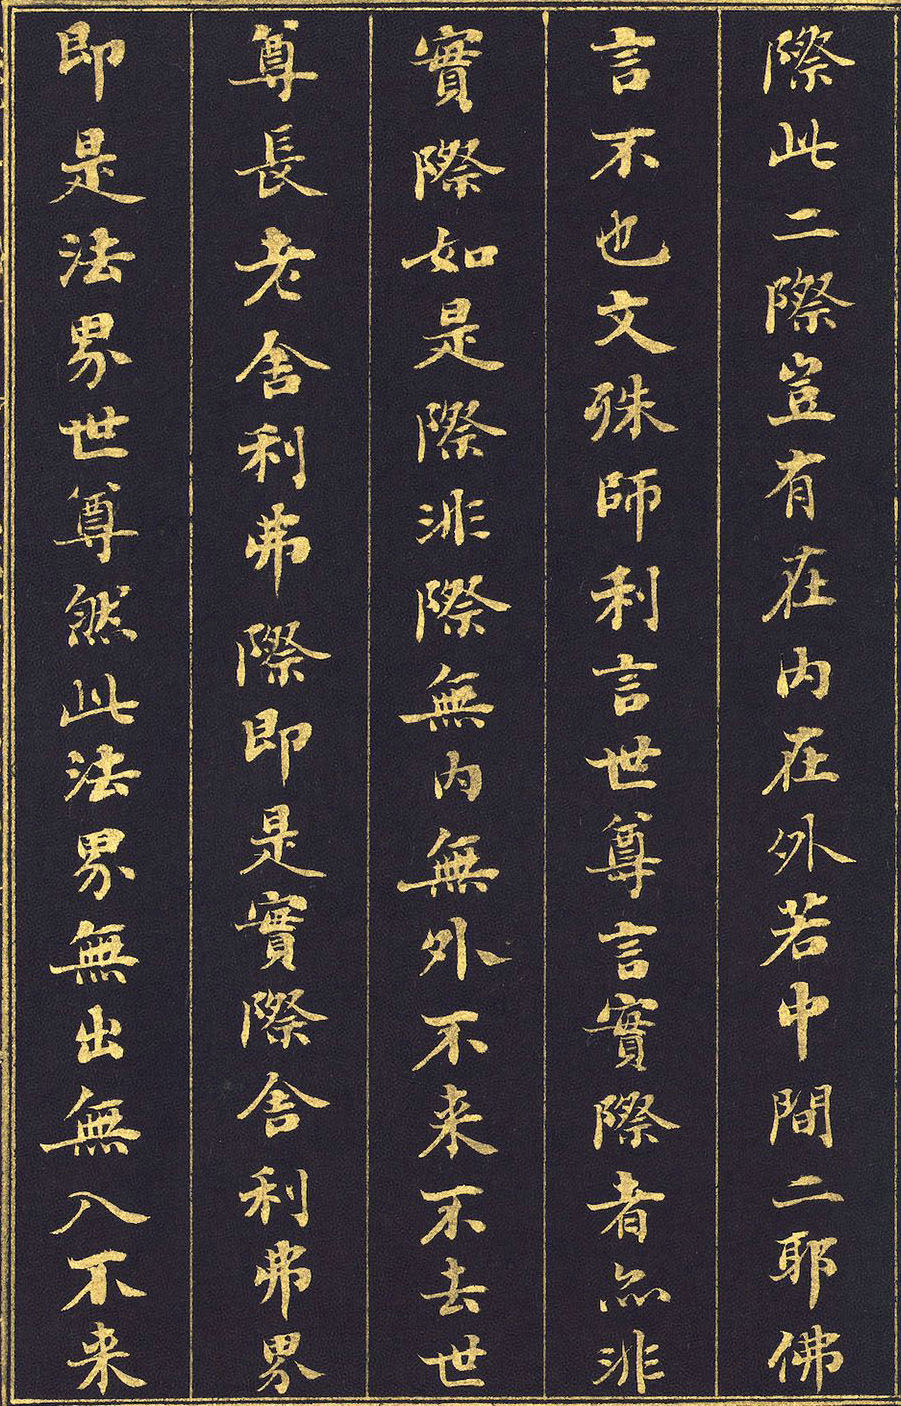 際此二際豈有在內在外若中間二耶佛
言不也文殊師利言世尊言實際者亦非
實際如是際非際無內無外不来不去世
尊長老舍利弗際即是實際舍利弗界
即是法界世尊然此法界無出無入不来